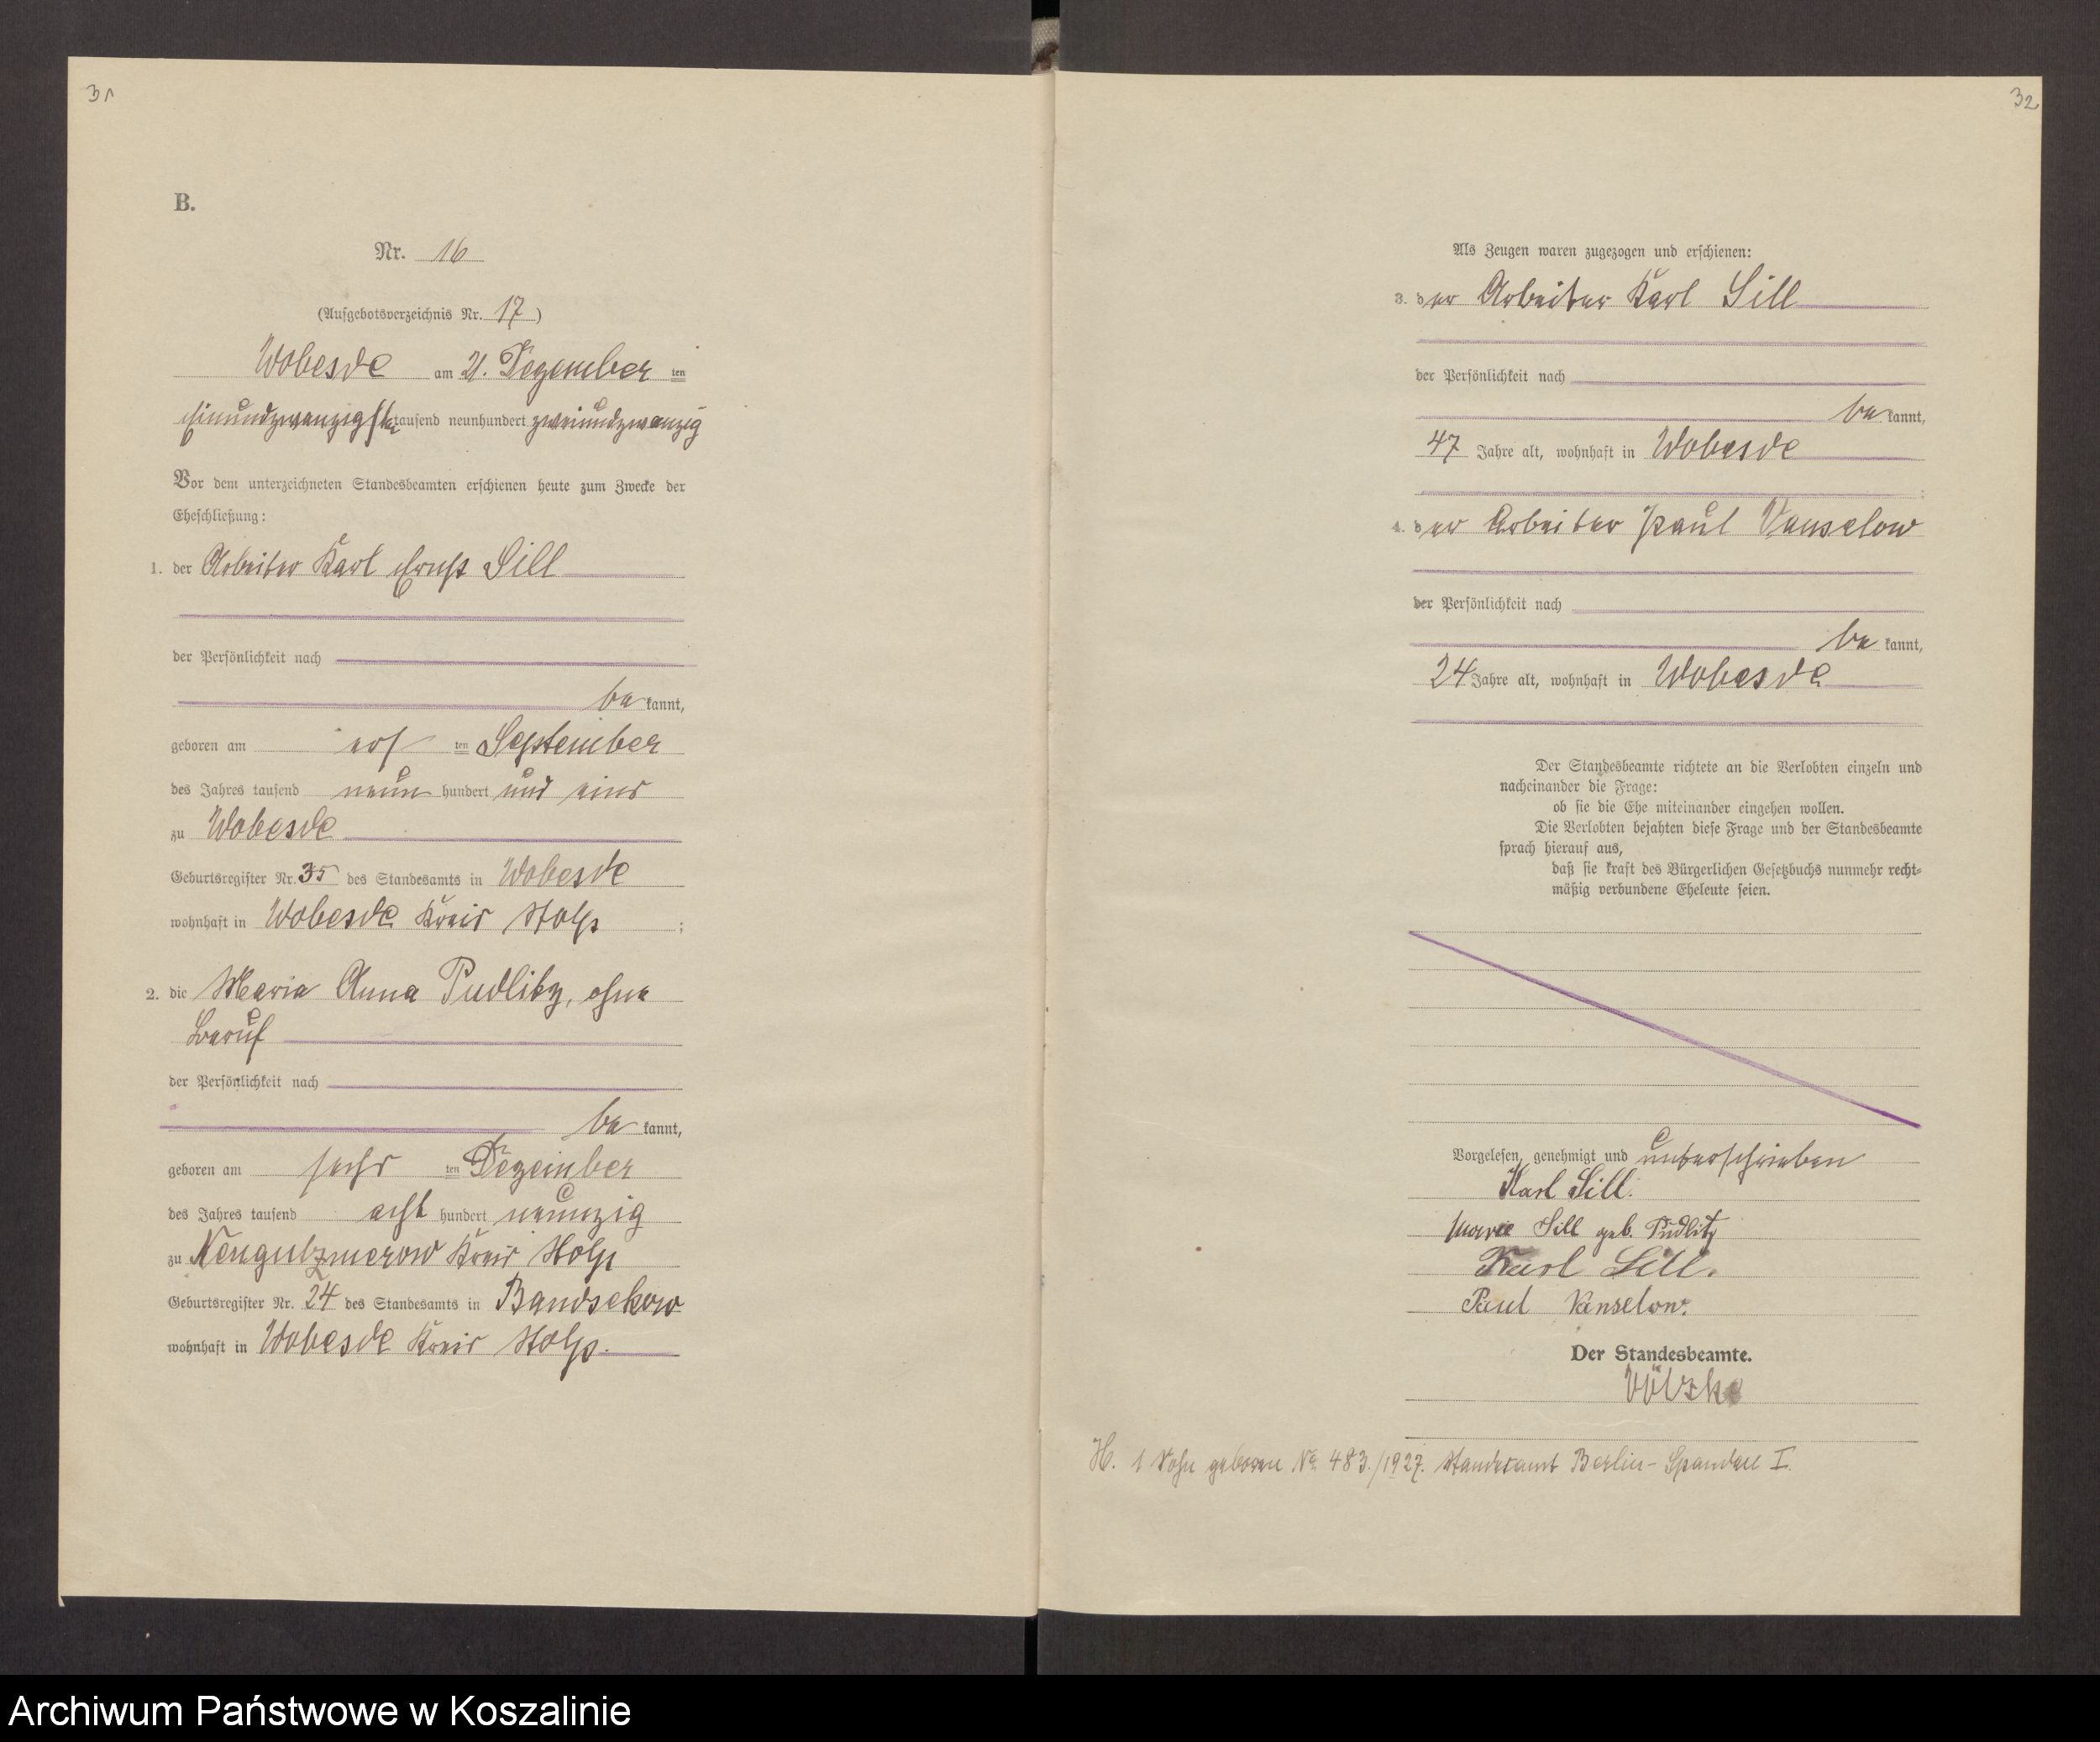 31
B.
Nr. 16
(Aufgebotsverzeichnis Nr. 17)
Wobesde am 21. Dezember ten
Einundzwanzigsten tausend neunhundert zweiundzwanzig
Vor dem unterzeichneten Standesbeamten erschienen heute zum Zwecke der
Eheschließung:
1. der Arbeiter Karl Ernst Sill
der Persönlichkeit nach
be kannt,
geboren am ten September
des Jahres tausend neun hundert und eins
zu Wobesde
Geburtsregister Nr. 35 des Standesamts in Wobesde
wohnhaft in Wobesde Kreis Stolp ;
2. die Maria Anna Pudlitz, ohne
Beruf
der Persönlichkeit nach
be kannt,
geboren am sechs ten Dezember
des Jahres tausend acht hundert neunzig
zu Neugutzmerow Kreis Stolp
Geburtsregister Nr. 24 des Standesamts in Bandsekow
wohnhaft in Wobesde Kreis Stolp.
32
Als Zeugen waren zugezogen und erschienen:
3. der Arbeiter Karl Sill
der Persönlichkeit nach
be kannt,
47 Jahre alt, wohnhaft in Wobesde ;
4. der Arbeiter Paul Vanselow
der Persönlichkeit nach
be kannt,
24 Jahre alt, wohnhaft in Wobesde
Der Standesbeamte richtete an die Verlobten einzeln und
nacheinander die Frage:
ob sie die Ehe miteinander eingehen wollen.
Die Verlobten bejahten diese Frage und der Standesbeamte
sprach hierauf aus,
daß sie kraft des Bürgerlichen Gesetzbuchs nunmehr recht-
mäßig verbundene Eheleute seien.
Vorgelesen, genehmigt und unterschrieben
Karl Sill.
Marie Sill geb. Pudlitz
Karl Sill.
Paul Vanselow.
Der Standesbeamte.
Völzke
H. 1 Sohn geboren No 483./1927. Standesamt Berlin-Spandau I.
Archiwum Państwowe w Koszalinie